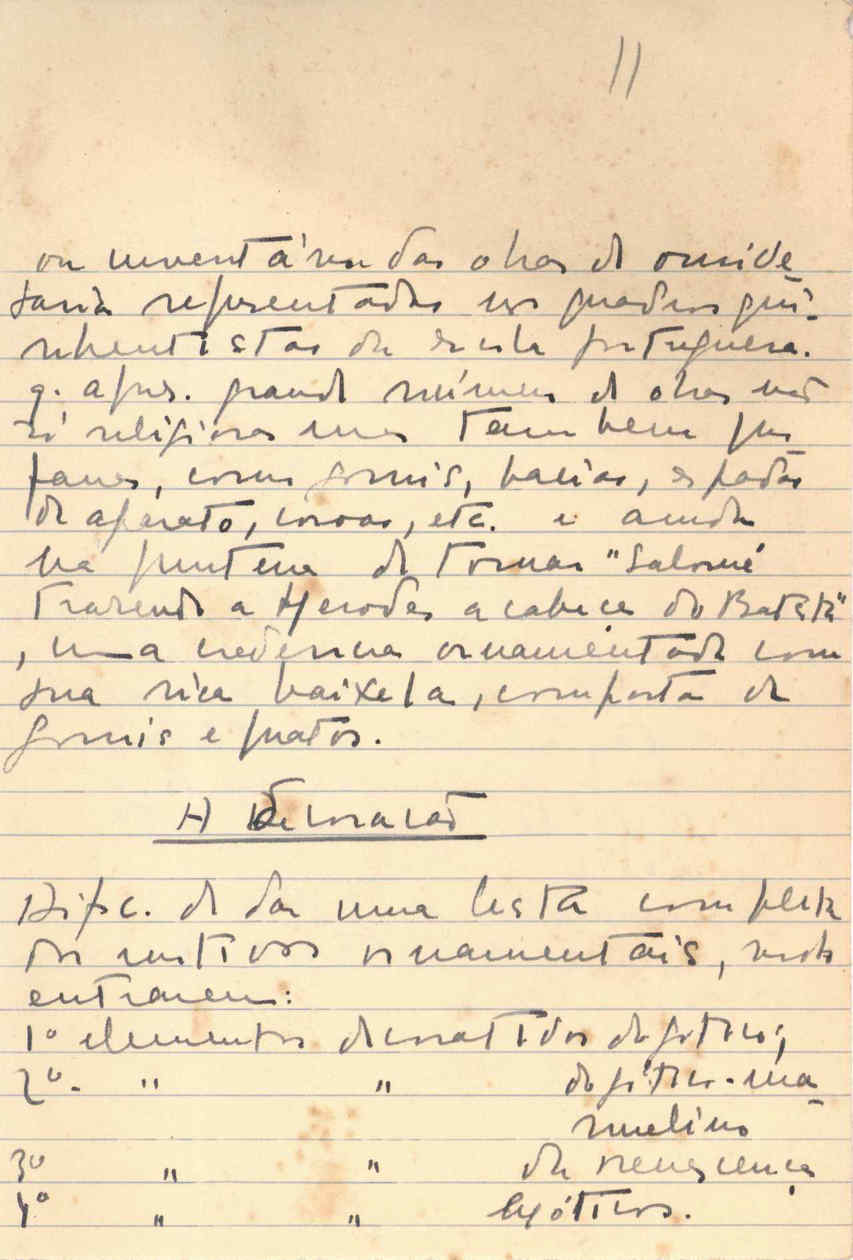 11
ou inventário das obras de ourive_
saria representadas nos quadros qui_
nhentistas da escola portuguesa.
q. apres. grande número de obras não
só religiosas mas tambem pro
fanas, como gomis, bacias, espadas
de aparato, coroas, etc. e ainda
na pintura de Tomar "Salomé
trazendo a Herodes a cabeça do Batista"
, uma credencia ornamentada com
sua rica baixela, composta de
gomis e pratos.
A Decoração
Dific. de dar uma lista completa
dos motivos ornamentais, onde
entrarem:
1º elementos decorativos do gotico;
2º - " " do gótico-ma_
nuelino
3º " " da renascença
4º " " Exóticos.